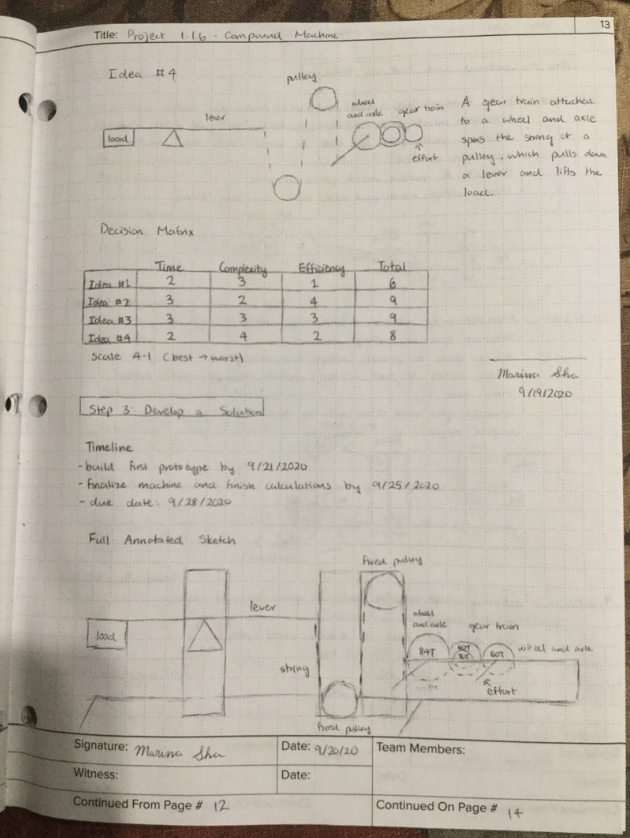 13
Title: Project 1.1.6 - Compound Machine
Idea #4
pulley
lever
wheel and axle
gear train
load
effort
A gear train attached
to a wheel and axle
spins the string of a
pulley, which pulls down
a lever and lifts the
load.
Decision Matrix
Time Complexity Efficiency Total
Idea #1 2 3 1 6
Idea #2 3 2 4 9
Idea #3 3 3 3 9
Idea #4 2 4 2 8
Scale 4-1 (best → worst)
Marina Sha
9/19/2020
Step 3: Develop a Solution
Timeline
- build first prototype by 9/21/2020
- finalize machine and finish calculations by 9/25/2020
- due date: 9/28/2020
Full Annotated Sketch
fixed pulley
lever
wheel
and axle
gear train
load
84T
60T
wheel and axle
string
effort
fixed pulley
Signature: Marina Sha
Date: 9/20/20
Team Members:
Witness:
Date:
Continued From Page # 12
Continued On Page # 14